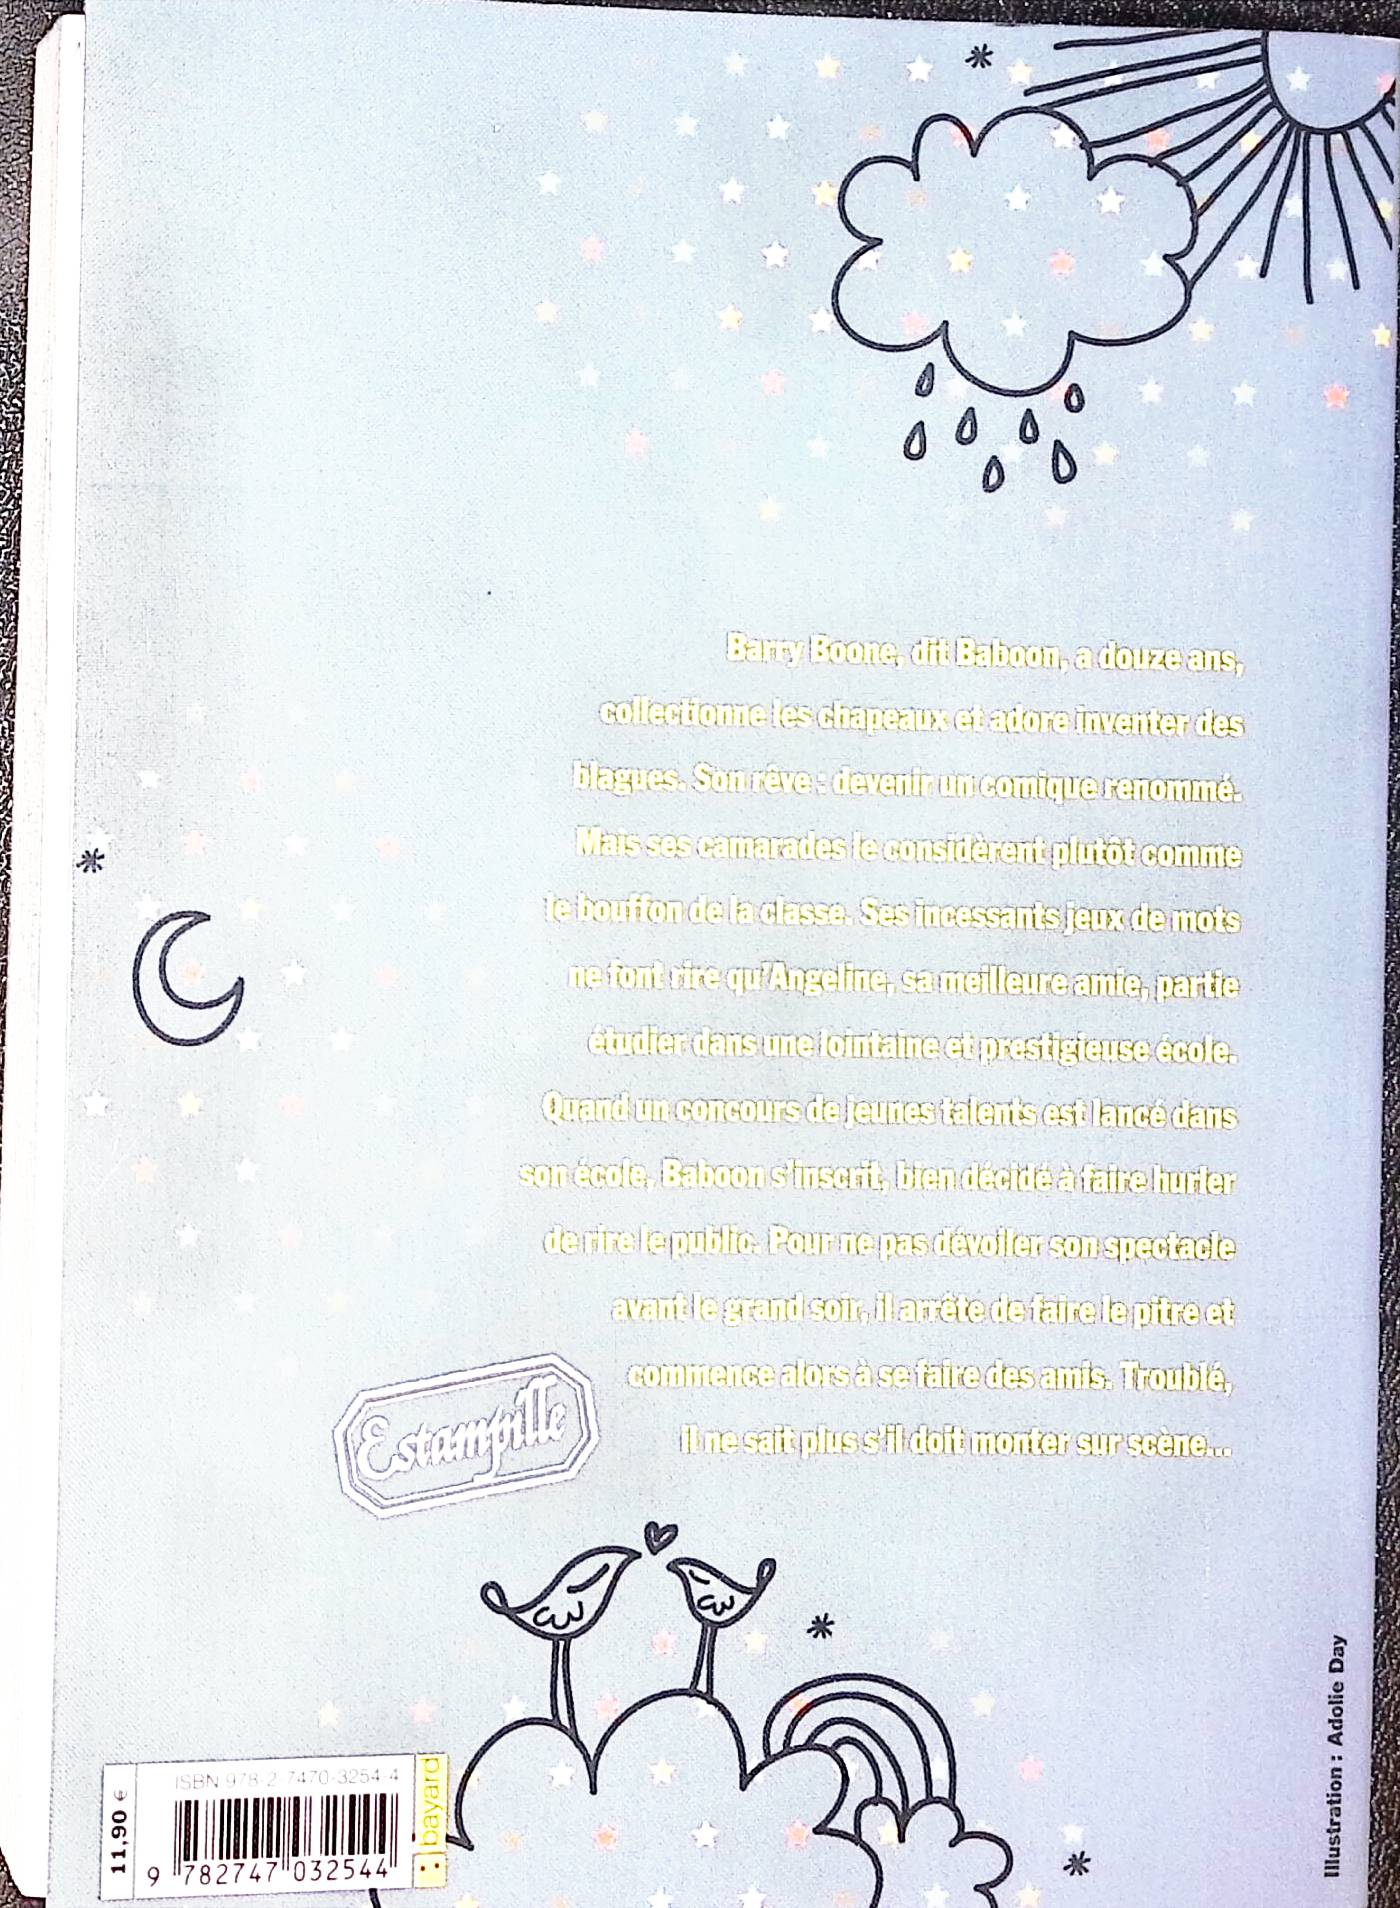 Barry Boone, dit Baboon, a douze ans,
collectionne les chapeaux et adore inventer des
blagues. Son rêve : devenir un comique renommé.
Mais ses camarades le considèrent plutôt comme
le bouffon de la classe. Ses incessants jeux de mots
ne font rire qu'Angeline, sa meilleure amie, partie
étudier dans une lointaine et prestigieuse école.
Quand un concours de jeunes talents est lancé dans
son école, Baboon s'inscrit, bien décidé à faire hurler
de rire le public. Pour ne pas dévoiler son spectacle
avant le grand soir, il arrête de faire le pitre et
commence alors à se faire des amis. Troublé,
il ne sait plus s'il doit monter sur scène...
Estampille
Illustration : Adolie Day
ISBN 978-2-7470-3254-4
11,90 €
9 782747 032544
bayard